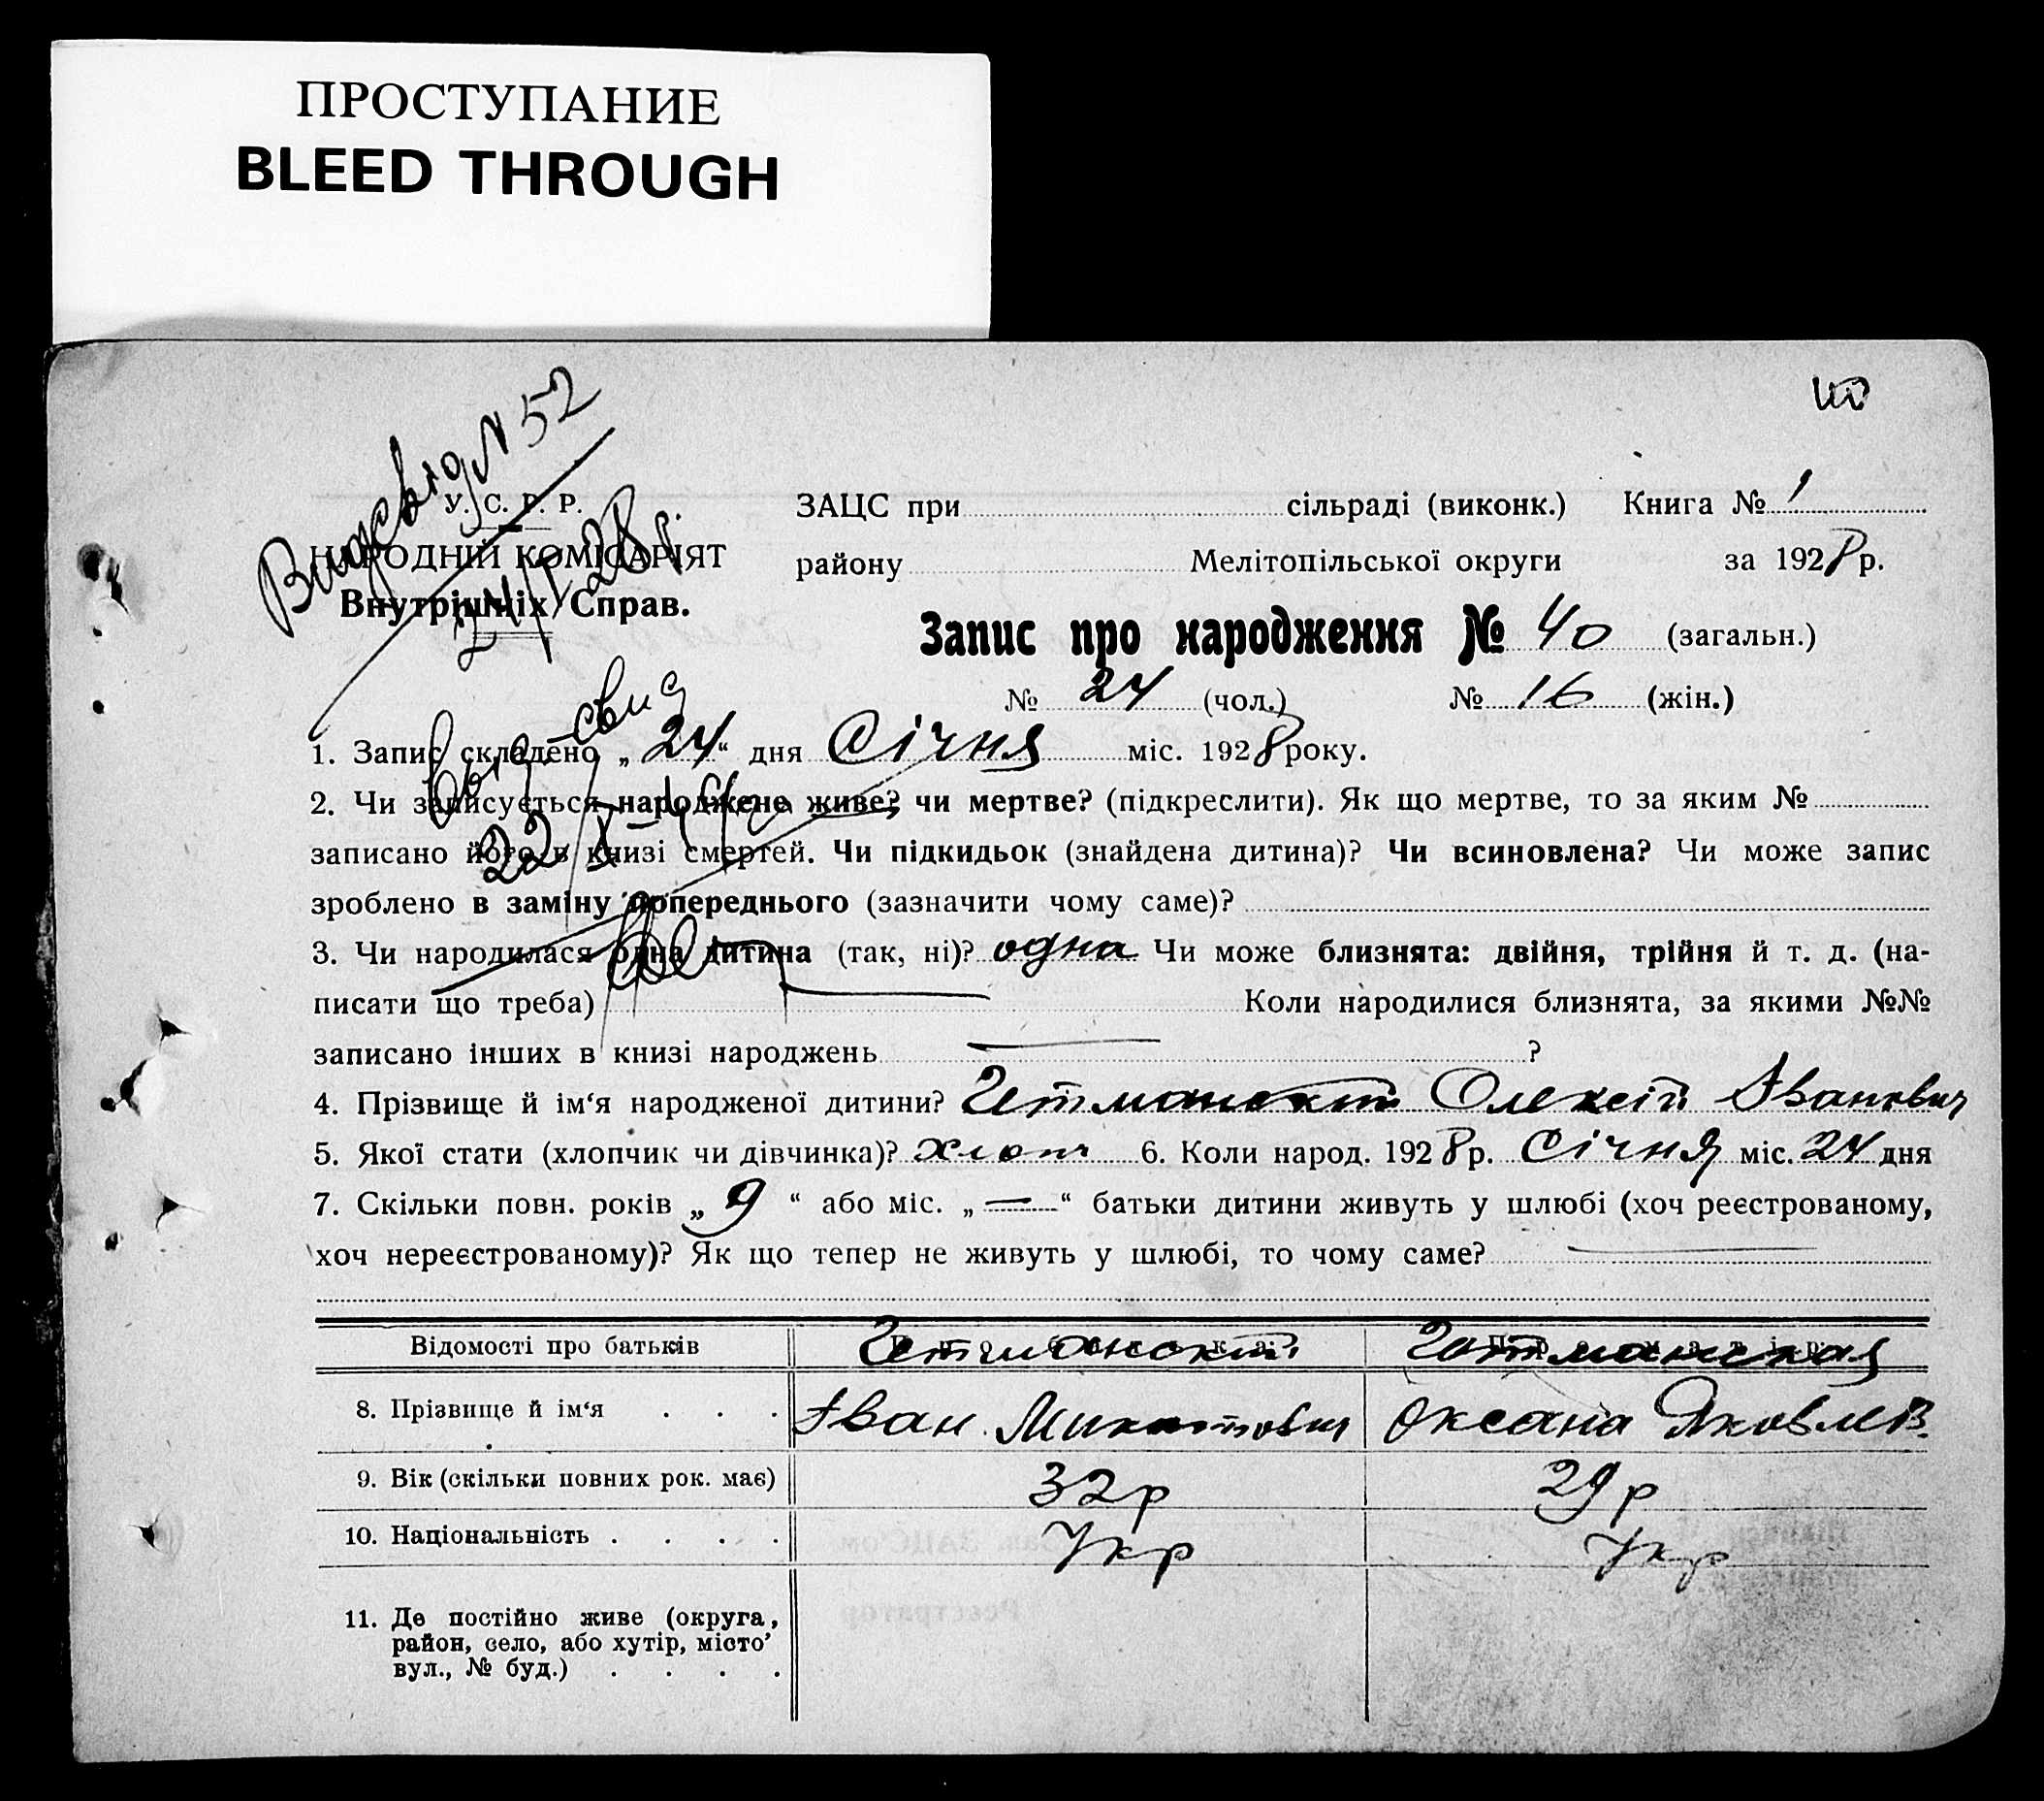 ПРОСТУПАНИЕ
BLEED THROUGH
40
Видсвід N 52
24/I 28 р.
У. С. Р. Р.
НАРОДНІЙ КОМІСАРІЯТ
Внутрішніх Справ.
ЗАЦС при сільраді (виконк.) Книга № 1
району Мелітопільської округи за 1928 р.
Запис про народження № 40 (загальн.)
№ 24 (чол.) № 16 (жін.)
1. Запис складено „ 24 “ дня Січня міс. 1928 року.
2. Чи записується народжене живе? чи мертве? (підкреслити). Як що мертве, то за яким №
записано його в книзі смертей. Чи підкидьок (знайдена дитина)? Чи всиновлена? Чи може запис
зроблено в заміну попереднього (зазначити чому саме)?
3. Чи народилася одна дитина (так, ні)? одна Чи може близнята: двійня, трійня й т. д. (на-
писати що треба) Коли народилися близнята, за якими №№
записано інших в книзі народжень ?
4. Прізвище й ім‘я народженої дитини? Гетманский Олексій Іванович
5. Якої стати (хлопчик чи дівчинка)? хлопч 6. Коли народ. 1928 р. Січня міс. 24 дня
7. Скільки повн. років „ 9 “ або міс. „ — “ батьки дитини живуть у шлюбі (хоч реєстрованому,
хоч нереєстрованому)? Як що тепер не живуть у шлюбі, то чому саме?
Відомості про батьків Гетманский Гетманская
8. Прізвище й ім‘я . . . Іван Микитович Оксана Яковлів.
9. Вік (скільки повних рок. має) 32 р 29 р
10. Національність . . . . Укр Укр
11. Де постійно живе (округа,
район, село, або хутір, місто’
вул., № буд.) . . . .